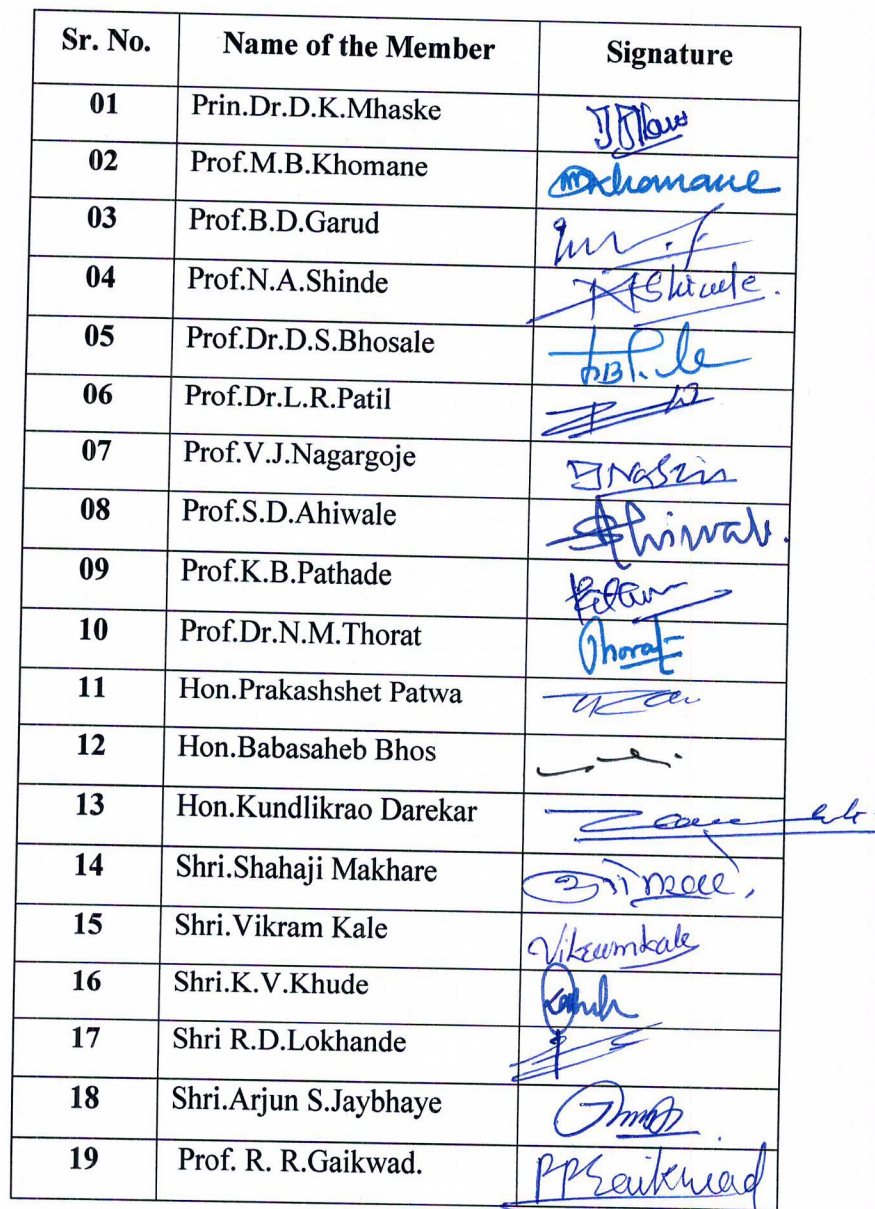 Sr. No. Name of the Member Signature
01 Prin.Dr.D.K.Mhaske
02 Prof.M.B.Khomane Khomane
03 Prof.B.D.Garud
04 Prof.N.A.Shinde Shinde.
05 Prof.Dr.D.S.Bhosale
06 Prof.Dr.L.R.Patil
07 Prof.V.J.Nagargoje
08 Prof.S.D.Ahiwale
09 Prof.K.B.Pathade
10 Prof.Dr.N.M.Thorat Thorat
11 Hon.Prakashshet Patwa
12 Hon.Babasaheb Bhos
13 Hon.Kundlikrao Darekar
14 Shri.Shahaji Makhare
15 Shri.Vikram Kale Vikramkale
16 Shri.K.V.Khude
17 Shri R.D.Lokhande
18 Shri.Arjun S.Jaybhaye
19 Prof. R. R.Gaikwad. Gaikwad